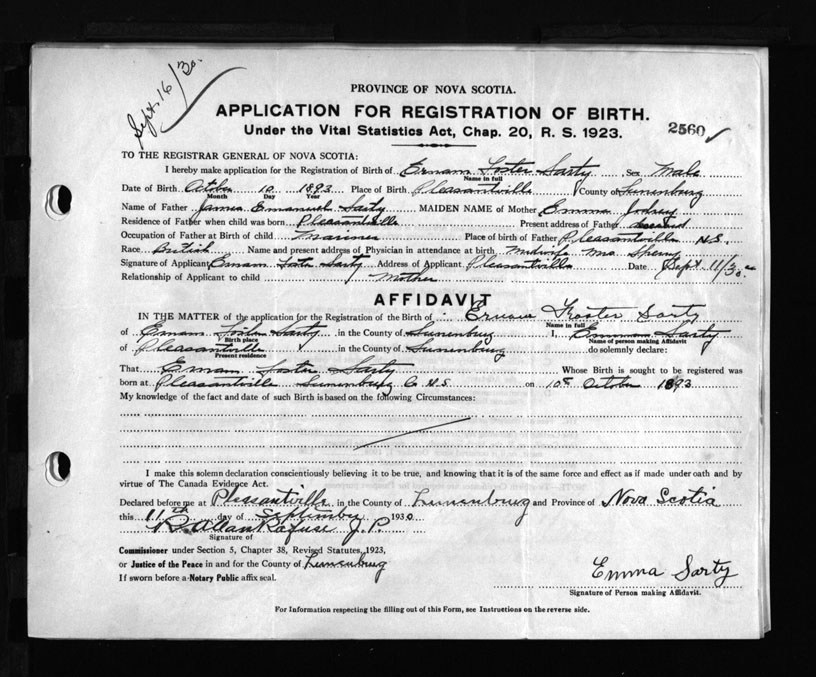 Sept. 16/30.
PROVINCE OF NOVA SCOTIA.
APPLICATION FOR REGISTRATION OF BIRTH.
2560
Under the Vital Statistics Act, Chap. 20, R. S. 1923.
TO THE REGISTRAR GENERAL OF NOVA SCOTIA:
I hereby make application for the Registration of Birth of Ernam Foster Sarty Sex Male
Name in full
Date of Birth October 10 1893 Place of Birth Pleasantville County of Lunenburg
Month Day Year
Name of Father James Emanuel Sarty MAIDEN NAME of Mother Emma
Residence of Father when child was born Pleasantville Present address of Father deceased
Occupation of Father at Birth of child Mariner Place of birth of Father Pleasantville N.S.
Race British Name and present address of Physician in attendance at birth Midwife Mrs
Signature of Applicant Ernam Foster Sarty Address of Applicant Pleasantville Date Sept. 11/30
Relationship of Applicant to child Mother
AFFIDAVIT
IN THE MATTER of the application for the Registration of the Birth of Foster Sarty
Name in full
of Ernam Foster Sarty in the County of Lunenburg I, Emma Sarty
Birth place Name of person making Affidavit
of Pleasantville in the County of Lunenburg do solemnly declare:
Present residence
That Ernam Foster Sarty Whose Birth is sought to be registered was
born at Pleasantville Lunenburg Co N.S. on 10th October 1893
My knowledge of the fact and date of such Birth is based on the following Circumstances:
I make this solemn declaration conscientiously believing it to be true, and knowing that it is of the same force and effect as if made under oath and by
virtue of The Canada Evidence Act.
Declared before me at Pleasantville in the County of Lunenburg and Province of Nova Scotia
this 11th day of September 1930
Allan Rafuse J. P.
Signature of
Commissioner under Section 5, Chapter 38, Revised Statutes, 1923,
or Justice of the Peace in and for the County of Lunenburg
If sworn before a Notary Public affix seal.
Emma Sarty
Signature of Person making Affidavit.
For Information respecting the filling out of this Form, see Instructions on the reverse side.